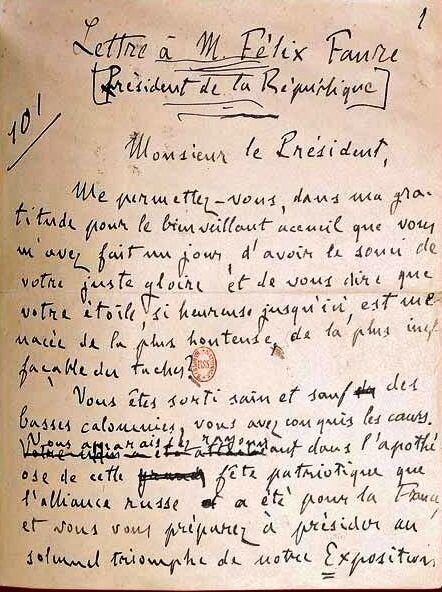 1
Lettre à M. Félix Faure
[Président de la République]
101
Monsieur le Président,
Me permettez-vous, dans ma gra-
titude pour le bienveillant accueil que vous
m'avez fait un jour, d'avoir le souci de
votre juste gloire et de vous dire que
votre étoile, si heureuse jusqu'ici, est me
nacée de la plus honteuse, de la plus inef
façable des taches?
Vous êtes sorti sain et sauf des
basses calomnies, vous avez conquis les cœurs.
Vous apparaissez rayonn
ant dans l'apothé
ose de cette fête patriotique que
l'alliance russe a été pour la France,
et vous vous préparez à présider au
solennel triomphe de notre Exposition